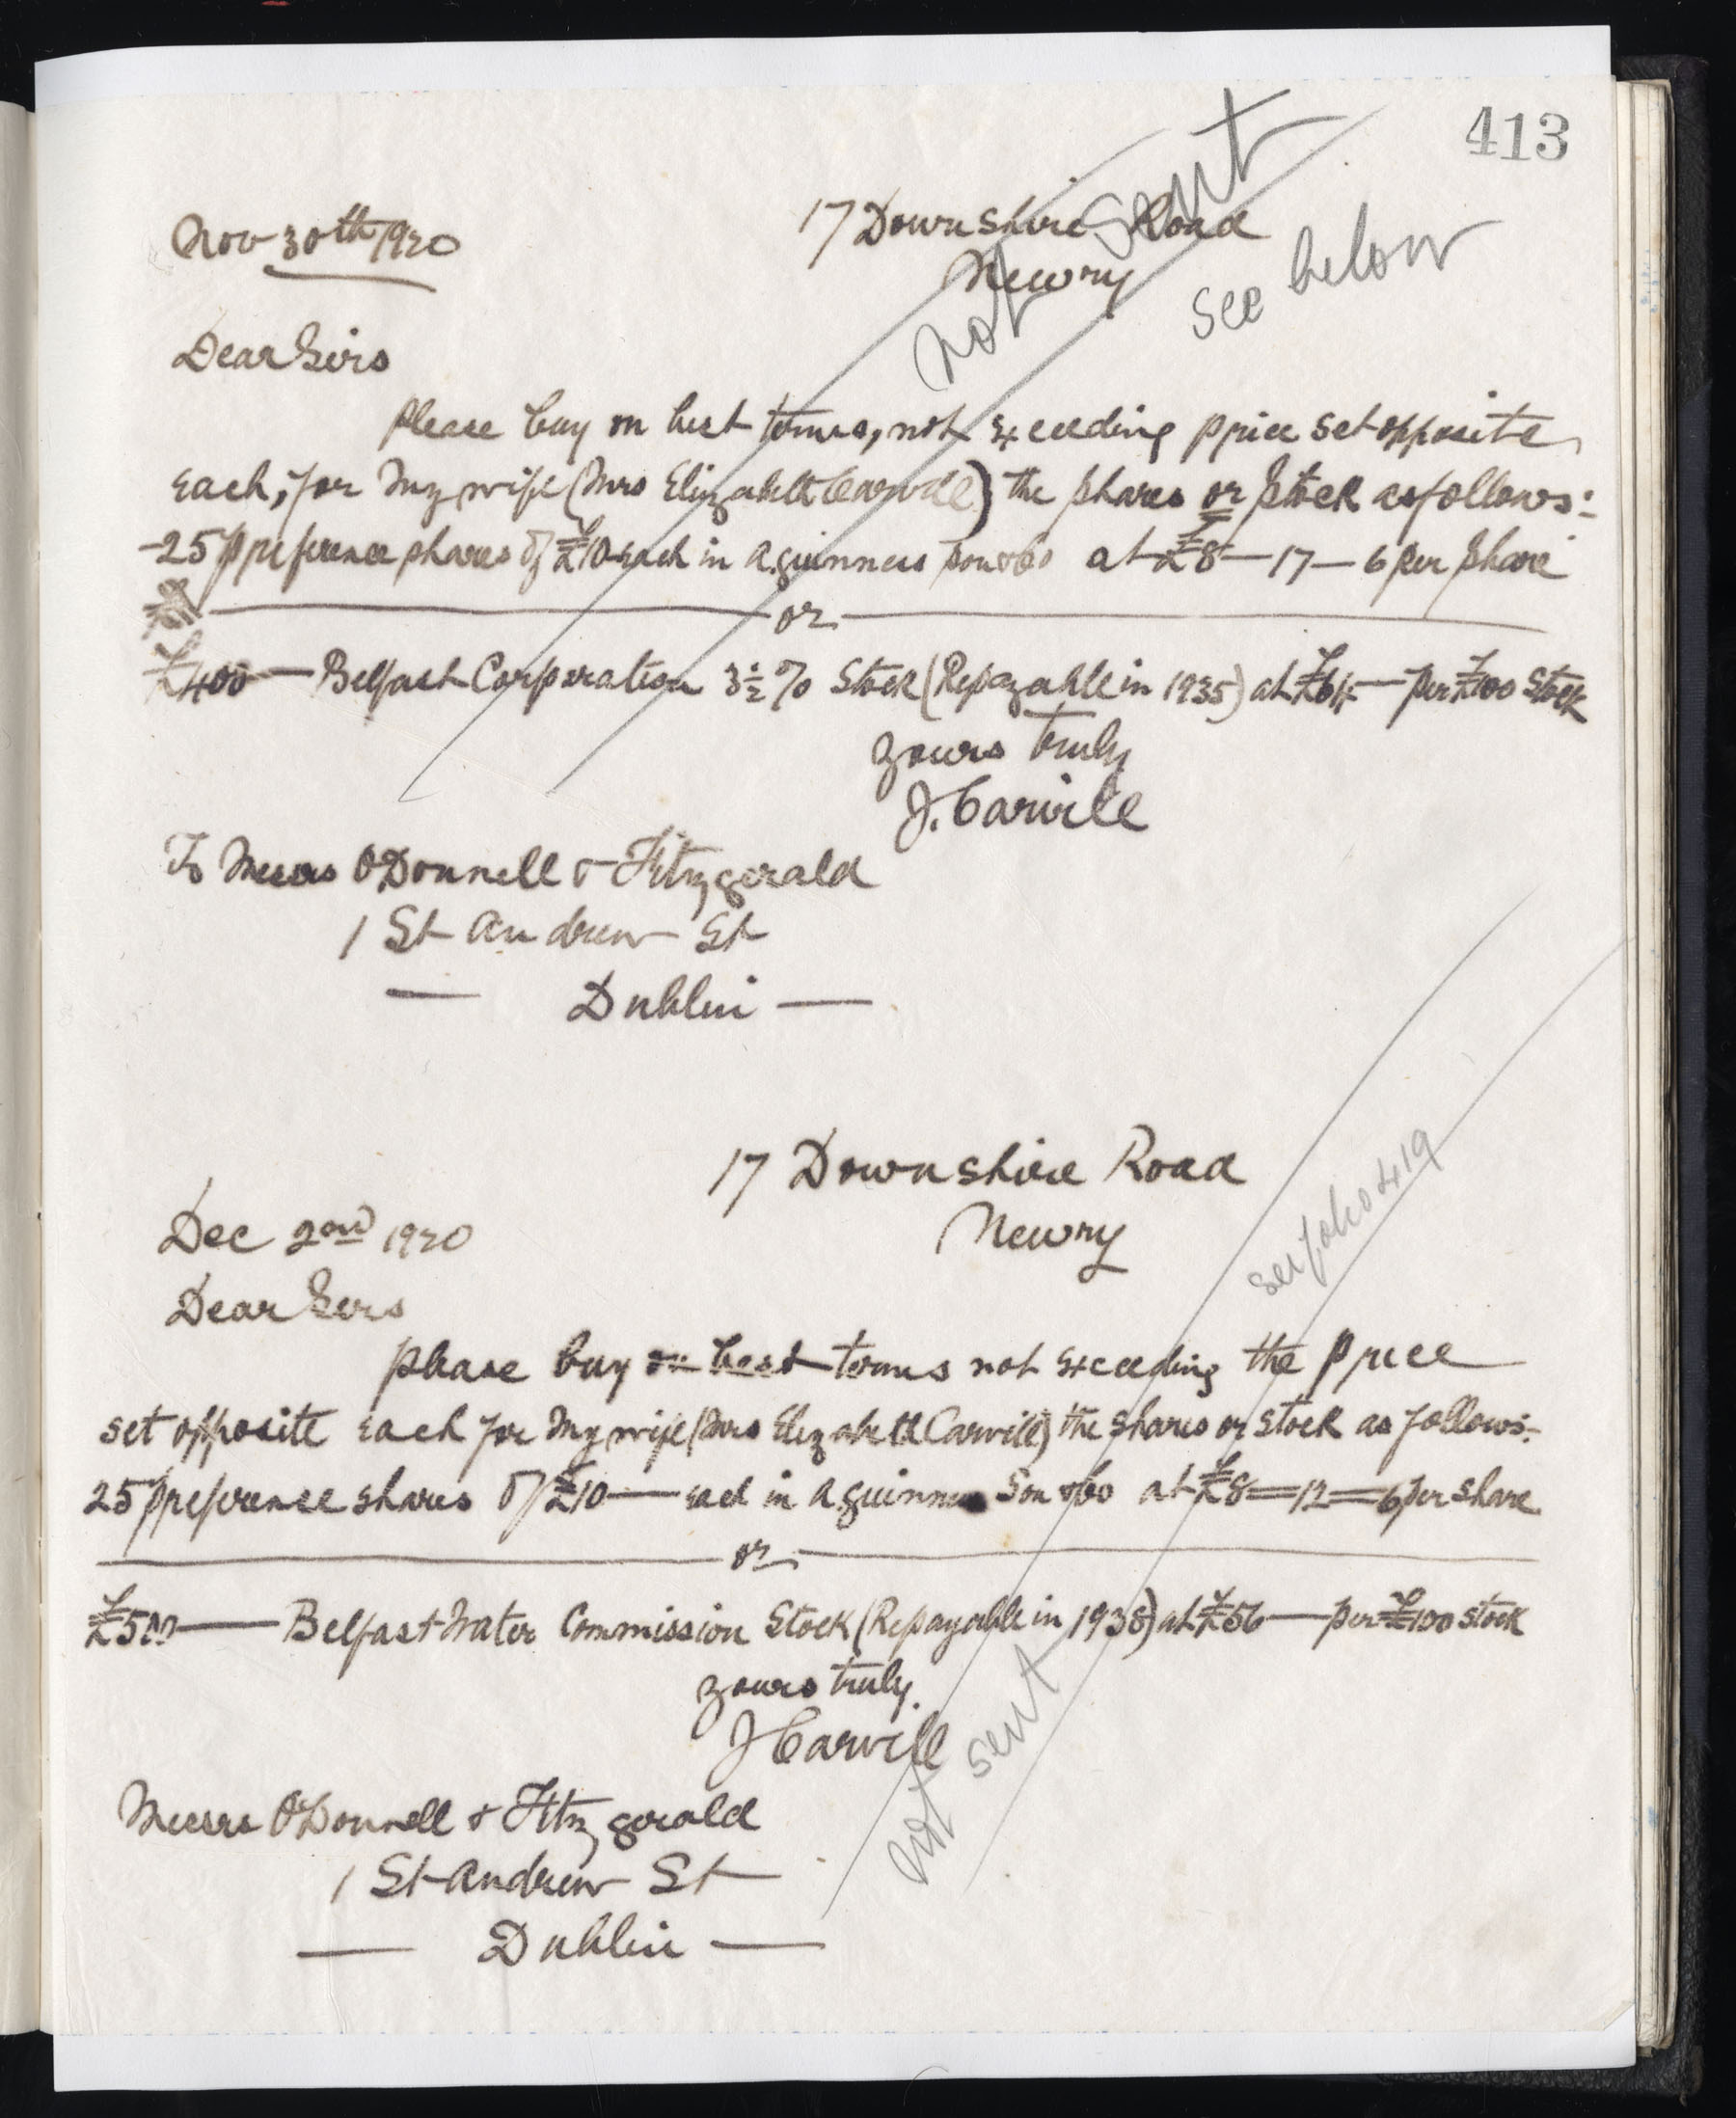 413
not sent
see below
17 Downshire Road
Nov 30th 1920
Newry
Dear Sirs
Please buy on best terms, not exceeding price set opposite
each, for my wife (Mrs Elizabeth Carvill) the shares or stock as follows:-
25 preference shares of £10 each in A. Guinness Son & Co at £8—17—6 per share
or
£400 — Belfast Corporation 3½ % Stock (Repayable in 1935) at £64 — per £100 Stock
yours truly
J. Carvill
To Messrs O'Donnell & Fitzgerald
1 St Andrew St
— Dublin —
17 Downshire Road
Newry
see folio 419
Dec 2nd 1920
Dear Sirs
please buy on best terms not exceeding the price
set opposite each for my wife (Mrs Elizabeth Carvill) the shares or stock as follows:-
25 preference shares of £10 — each in A Guinness Son & Co at £8=12=6 per share
or
£500 — Belfast Water Commission Stock (Repayable in 1938) at £56 — per £100 stock
yours truly
J Carvill
not sent
Messrs O'Donnell & Fitzgerald
1 St Andrew St
— Dublin —